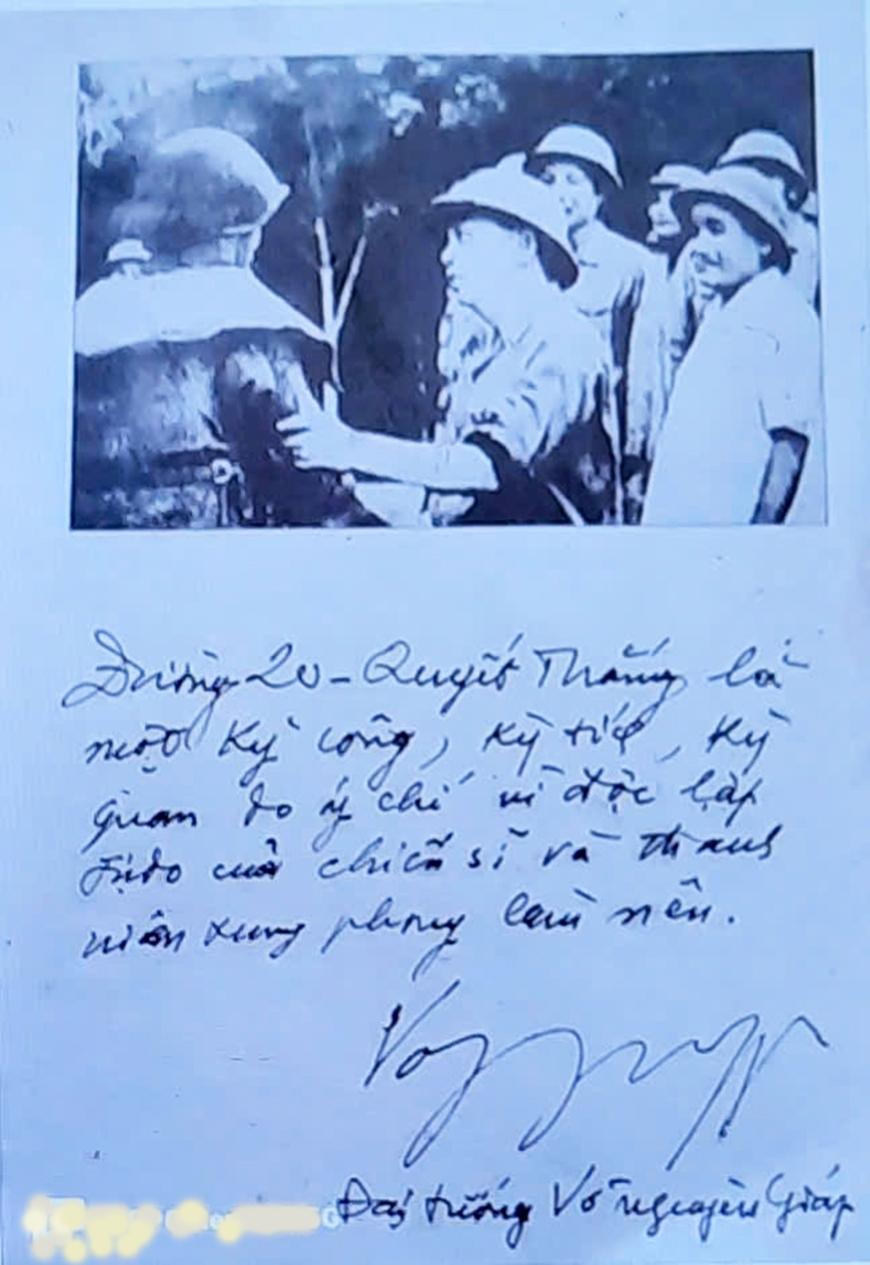 Đường 20 - Quyết Thắng là
một kỳ công, kỳ tích, kỳ
quan do ý chí vì độc lập
tự do của chiến sĩ và thanh
niên xung phong làm nên.
Đại tướng Võ Nguyên Giáp